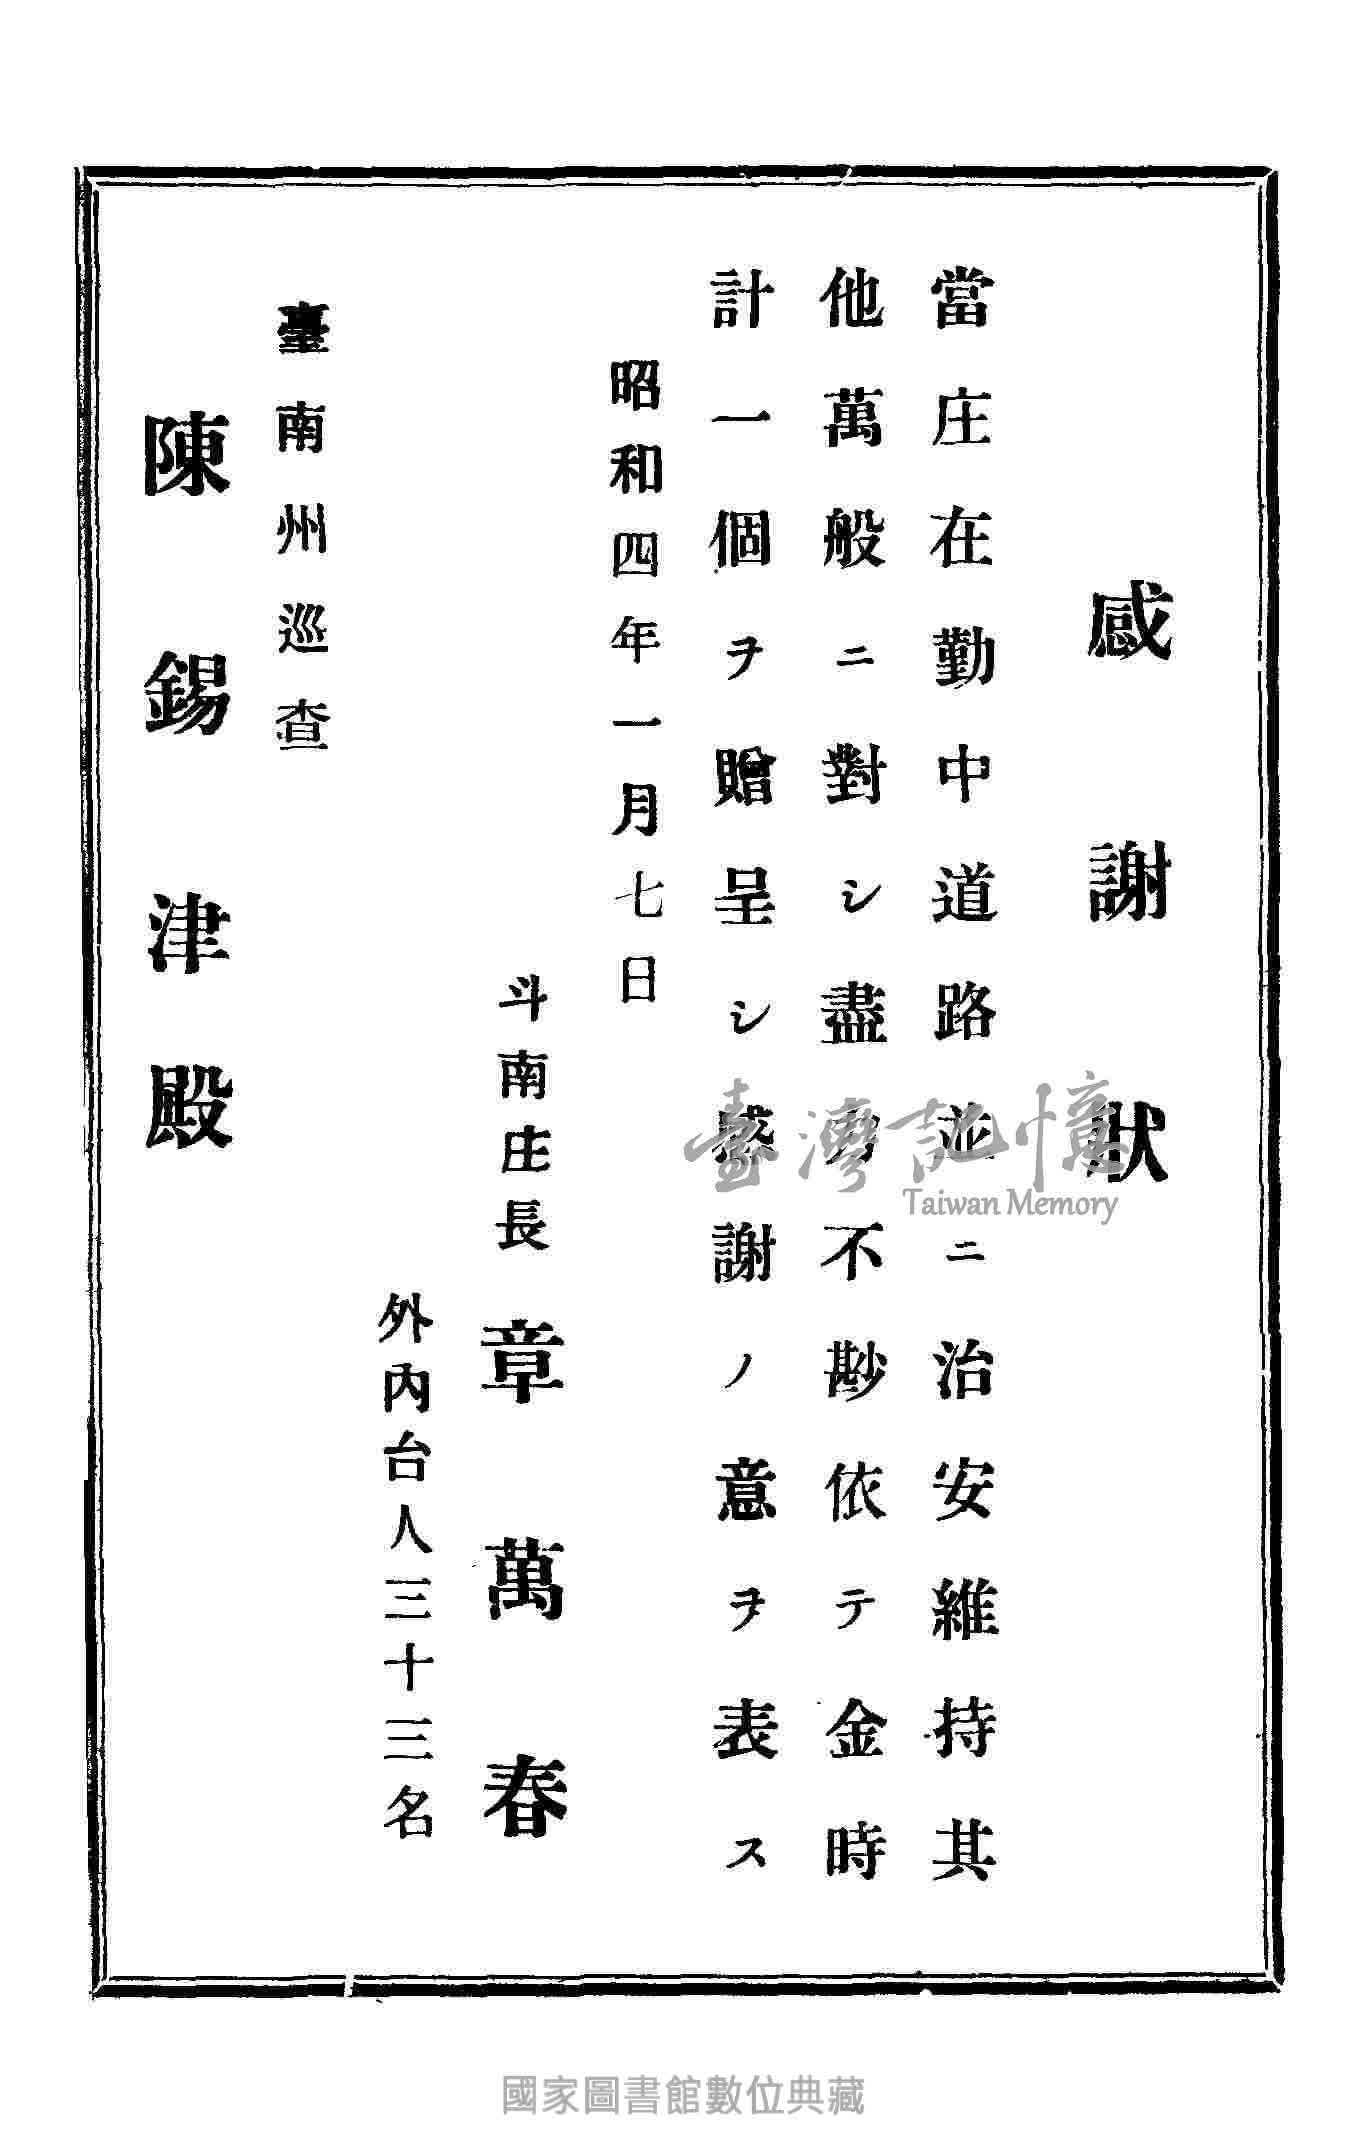 感謝狀
當庄在勤中道路並ニ治安維持其
他萬般ニ對シ盡力不尠依テ金時
計一個ヲ贈呈シ感謝ノ意ヲ表ス
昭和四年一月七日
斗南庄長 章萬春
外內台人三十三名
臺南州巡查
陳錫津殿
臺灣記憶
Taiwan Memory
國家圖書館數位典藏